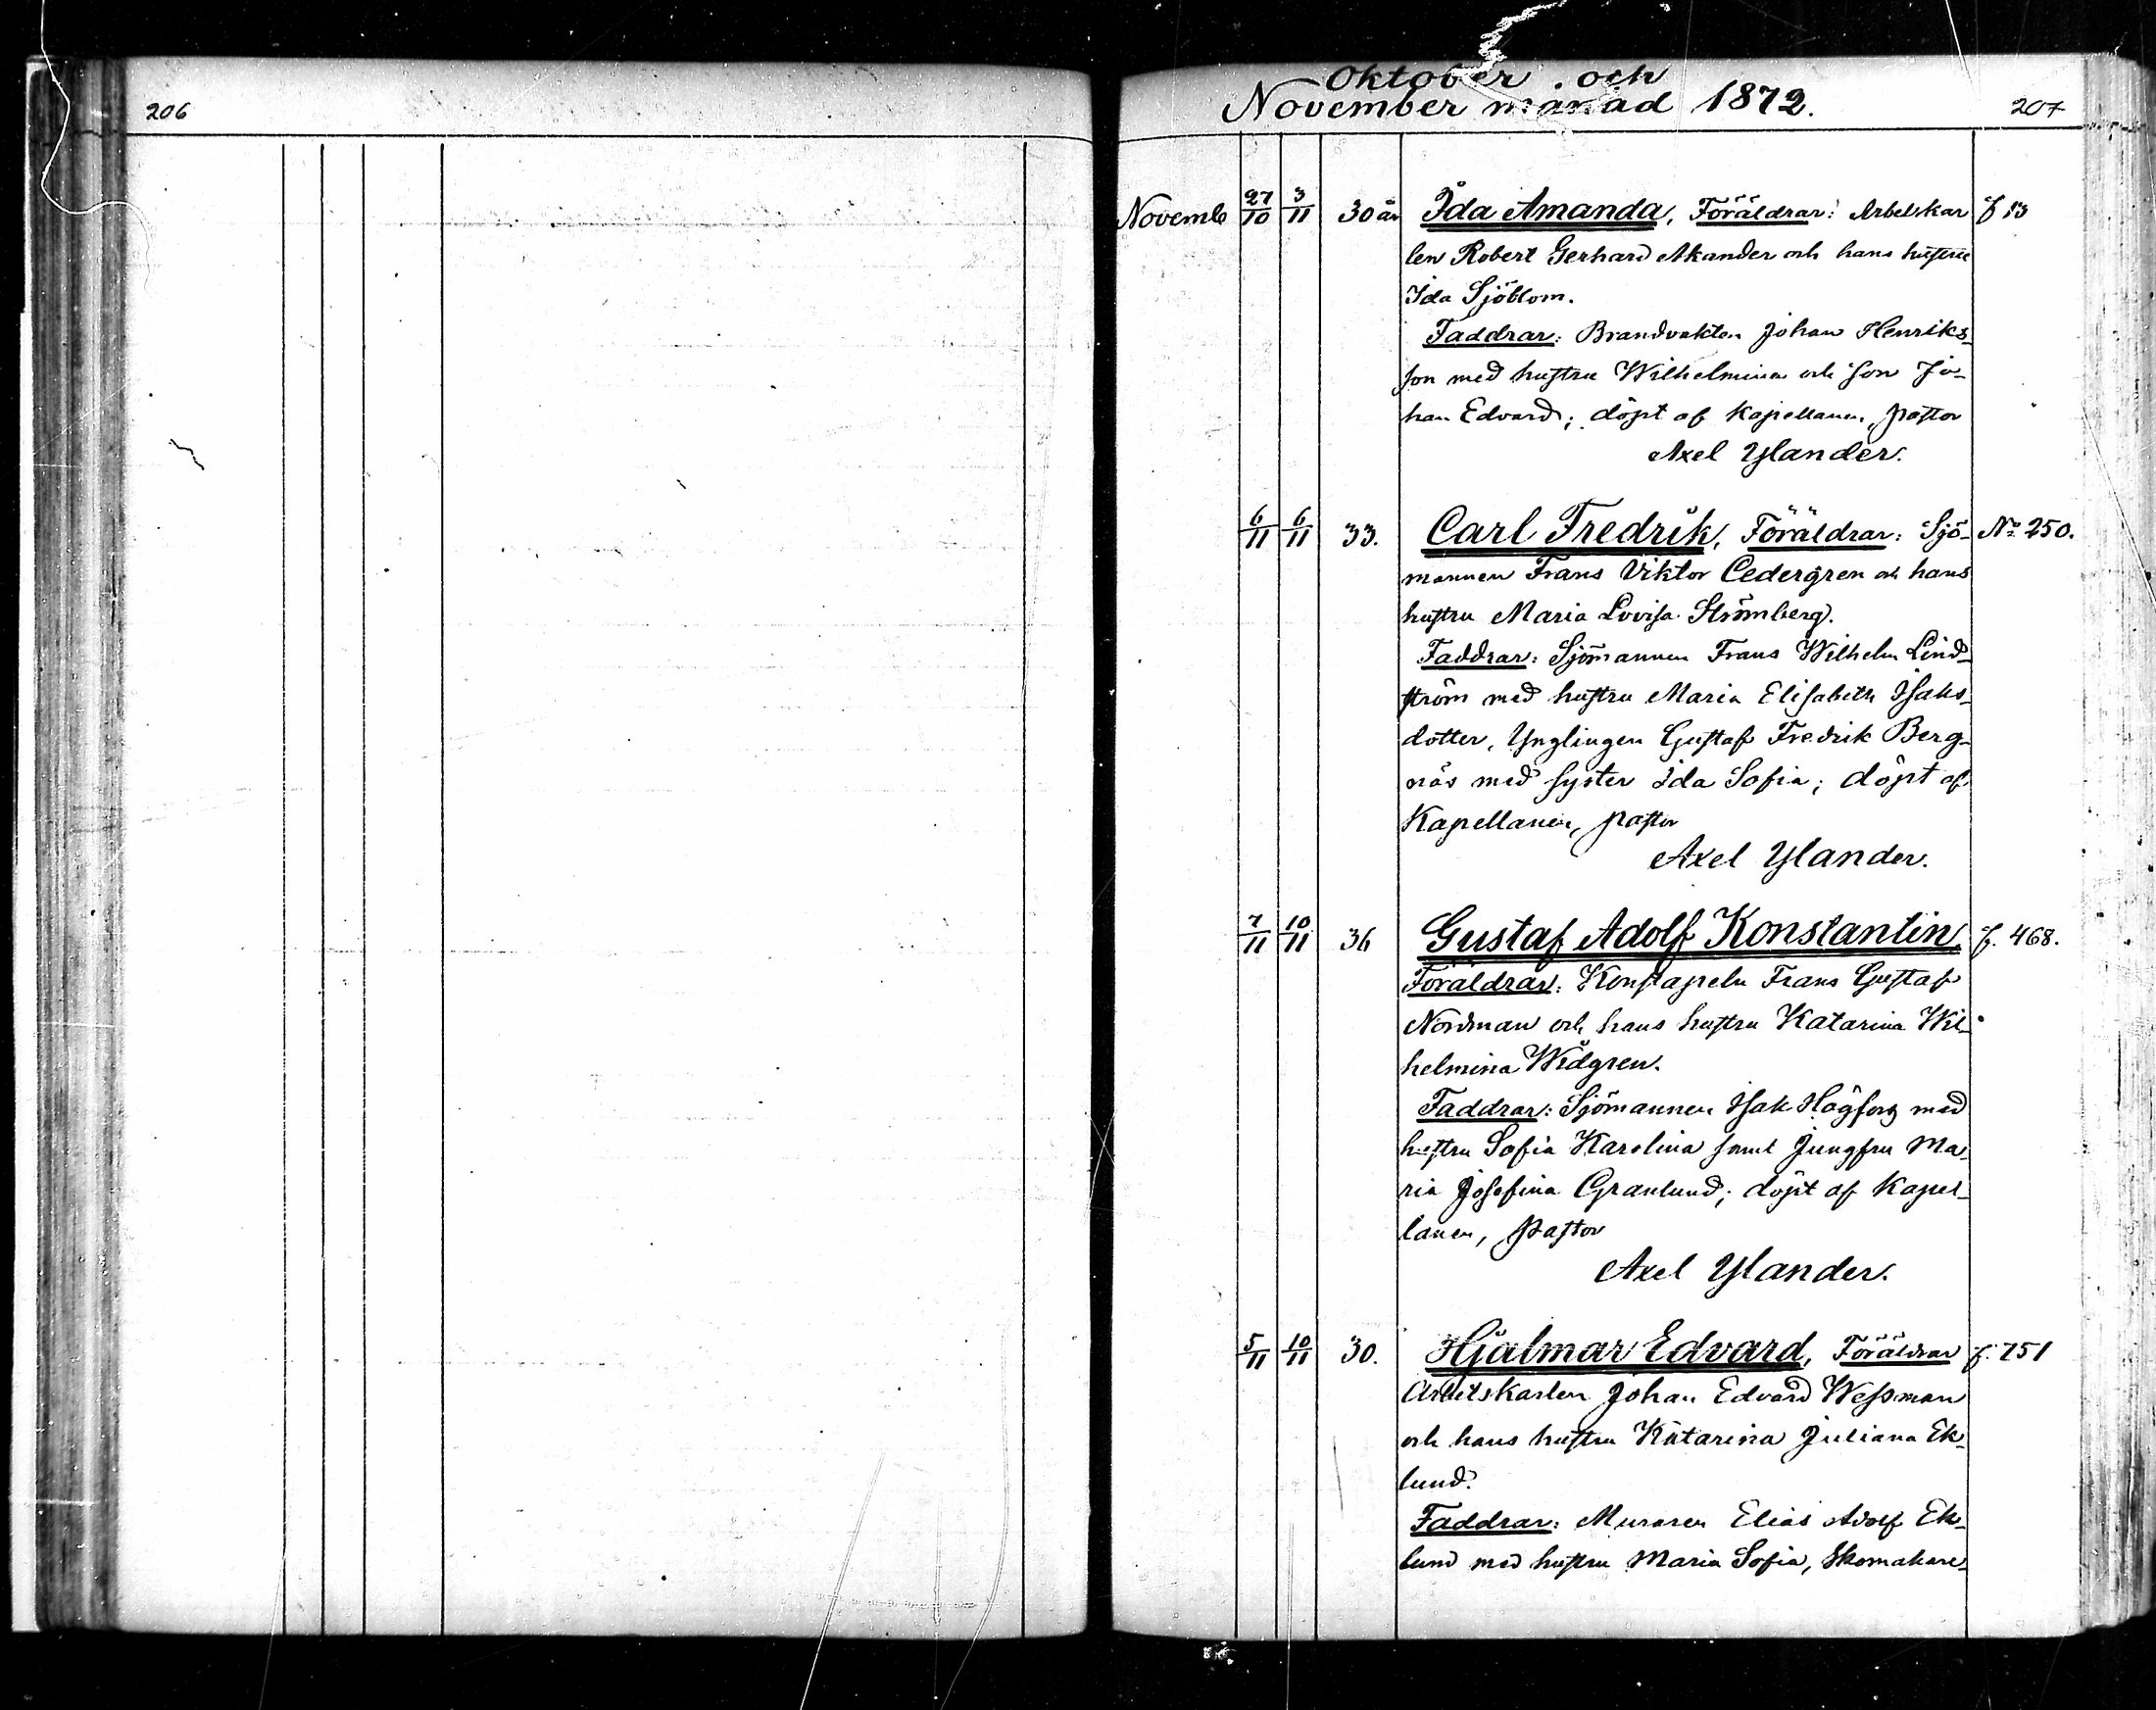 206
Oktober och
November månad 1872.
207
Novemb 27/10 3/11 30 år Ida Amanda, Föräldrar: Arbetskar f 13
len Robert Gerhard Akander och hans hustru
Ida Sjöblom.
Faddrar: Brandvakten Johan Henriks-
son med hustru Wilhelmina och son Jo-
han Edvard; döpt af Kapellanen, pastor
Axel Ylander.
6/11 6/11 33. Carl Fredrik, Föräldrar: Sjö- No 250.
mannen Frans Viktor Cedergren och hans
hustru Maria Lovisa Strömberg.
Faddrar: Sjömannen Frans Wilhelm Lind-
ström med hustru Maria Elisabeth Isaks-
dotter, Ynglingen Gustaf Fredrik Berg-
näs med syster Ida Sofia; döpt af
Kapellanen, pastor
Axel Ylander.
7/11 10/11 36 Gustaf Adolf Konstantin, f. 468.
Föräldrar: Konstapeln Frans Gustaf
Nordman och hans hustru Katarina Wil-
helmina Widgren.
Faddrar: Sjömannen Isak Högfors med
hustru Sofia Karolina samt Jungfru Ma-
ria Josefina Granlund; döpt af Kapel-
lanen, pastor
Axel Ylander.
5/11 10/11 30. Hjalmar Edvard, Föräldrar f. 751
Arbetskarlen Johan Edvard Wessman
och hans hustru Katarina Juliana Ek-
lund.
Faddrar: Muraren Elias Adolf Ek-
lund med hustru Maria Sofia, Skomakare-